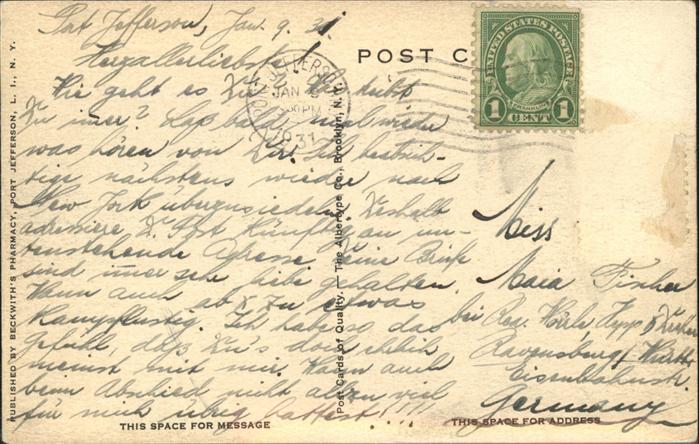 Port Jefferson, Jan. 9. 31
Herzallerliebste!
Wie geht es Dir?
Du immer? Laß bald mal wieder
was hören von Dir. Ich beabsich-
tige nächstens wieder nach
New York überzusiedeln, deshalb
adressiere D. Post künftig an un-
tenstehende Adresse. Deine Briefe
sind immer sehr lieb gehalten.
Wenn auch ab & zu etwas
kampflustig. Ich habe so das
Gefühl, daß Du's doch ehrlich
meinst mit mir. Wenn auch
beim Abschied nicht allzu viel
für mich übrig hattest....!!!
THIS SPACE FOR MESSAGE
PUBLISHED BY BECKWITH'S PHARMACY, PORT JEFFERSON, L. I., N. Y.
Post Cards of Quality. — The Albertype Co., Brooklyn, N. Y.
POST C
JAN 9
30 PM
1931
UNITED STATES POSTAGE
FRANKLIN
1 CENT 1
Miss
Maia Fischer
bei Reg.
Ravensburg/Württ.
Eisenbahnstr.
Germany
THIS SPACE FOR ADDRESS